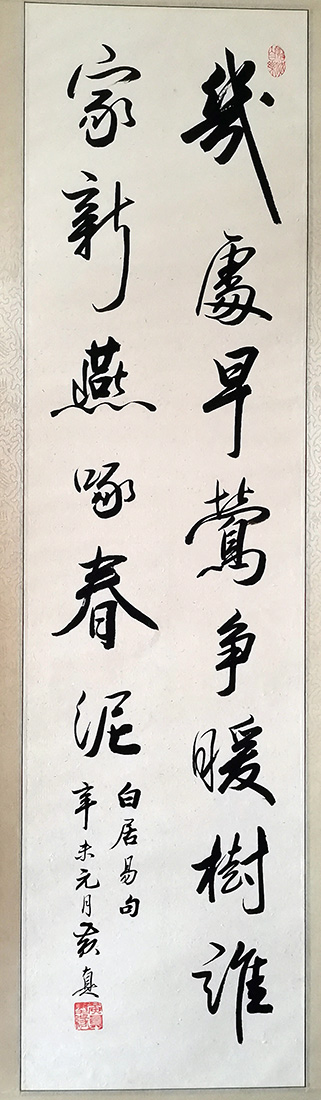 幾處早鶯争暖樹誰
家新燕啄春泥
白居易句
辛未元月黄真